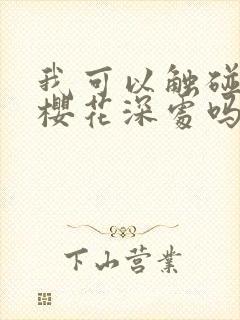 我可以触碰
樱花深处吗
下山营业